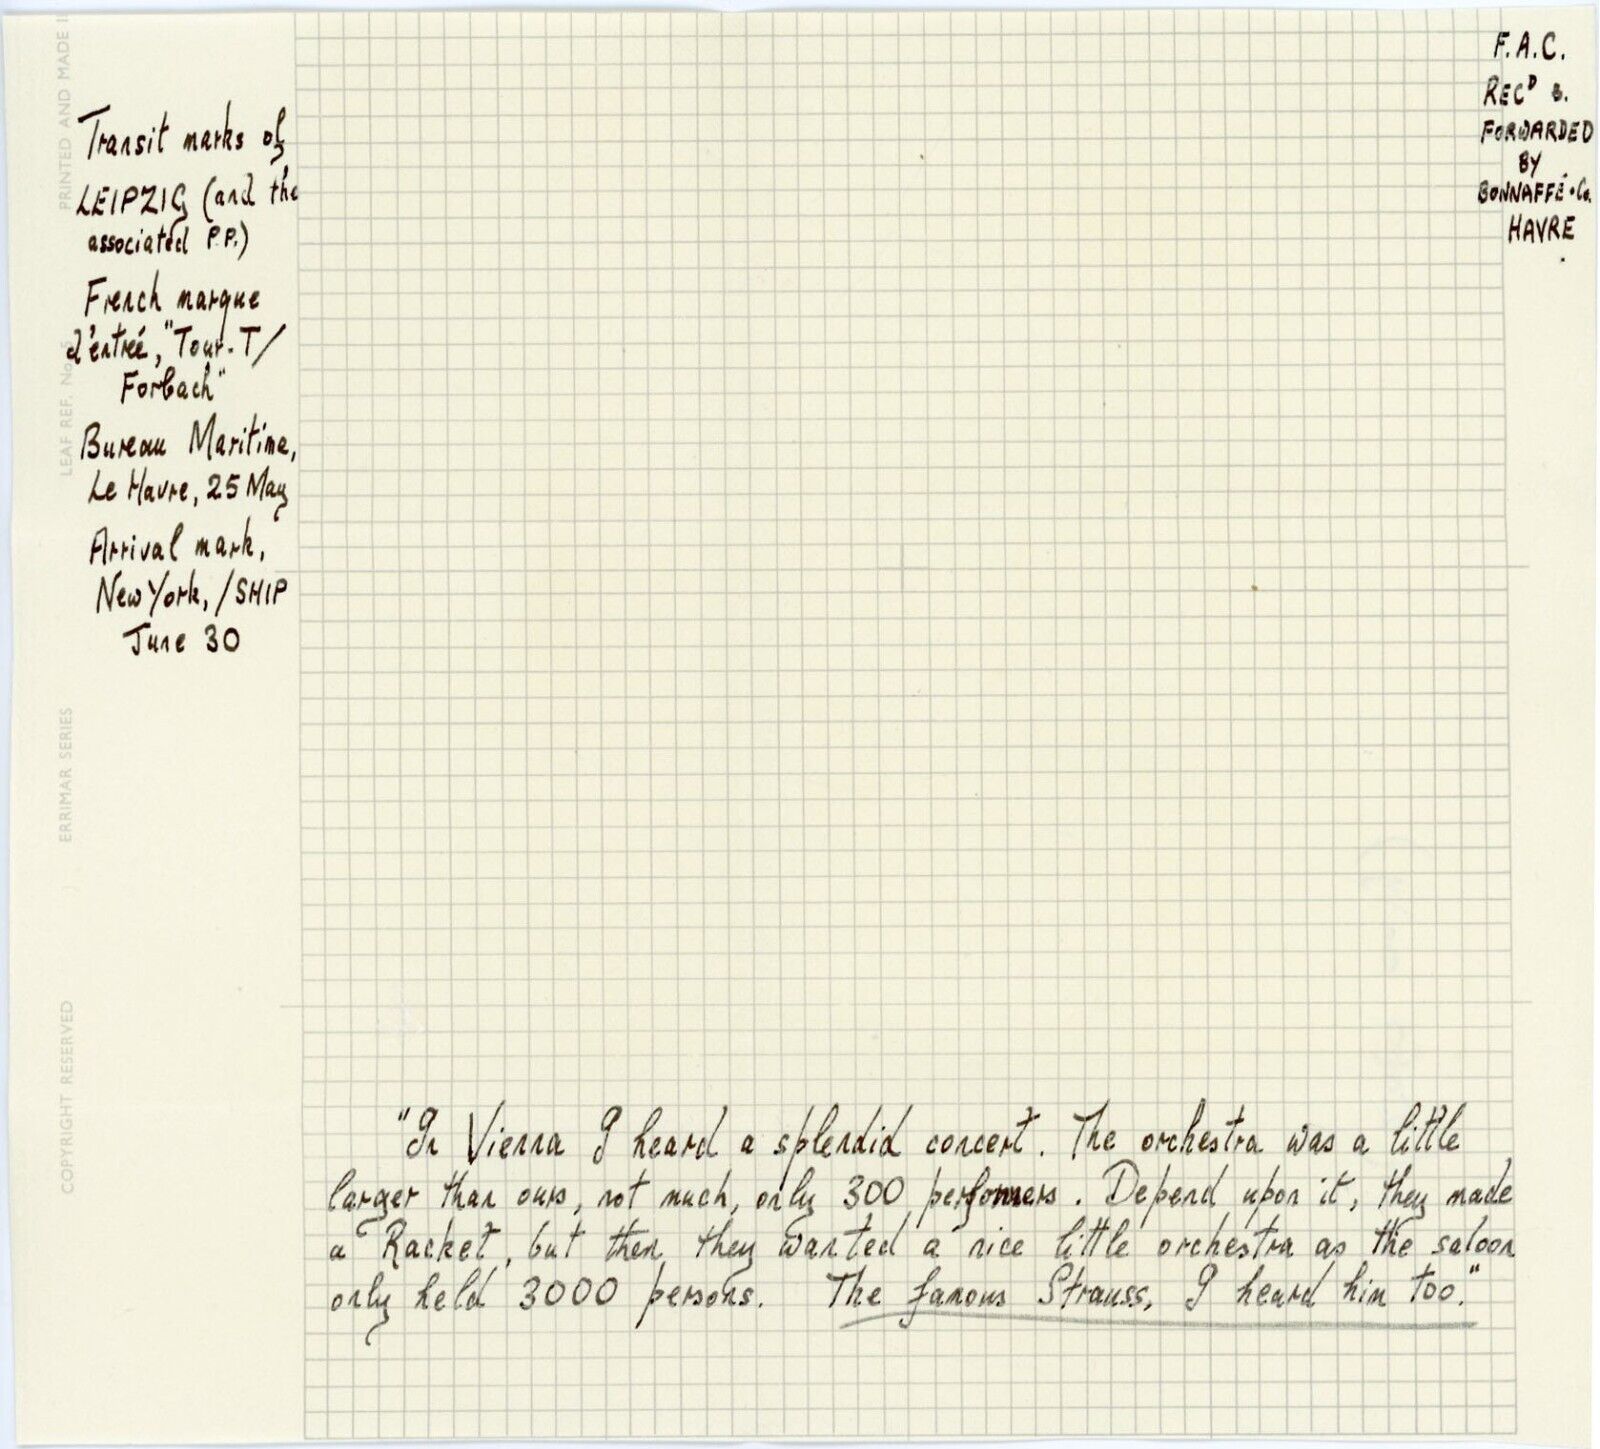 Transit marks of
LEIPZIG (and the
associated P.P.)
French marque
d'entrée, "Tour-T/
Forbach"
Bureau Maritime,
Le Havre, 25 May
Arrival mark,
New York, /SHIP
June 30
F.A.C.
RECᴰ &.
FORWARDED
BY
BONNAFFÉ & Co.
HAVRE
"In Vienna I heard a splendid concert. The orchestra was a little
larger than ours, not much, only 300 performers. Depend upon it, they made
a Racket, but then they wanted a nice little orchestra as the saloon
only held 3000 persons. The famous Strauss, I heard him too."
PRINTED AND MADE I
LEAF REF. No.
ERRIMAR SERIES
COPYRIGHT RESERVED